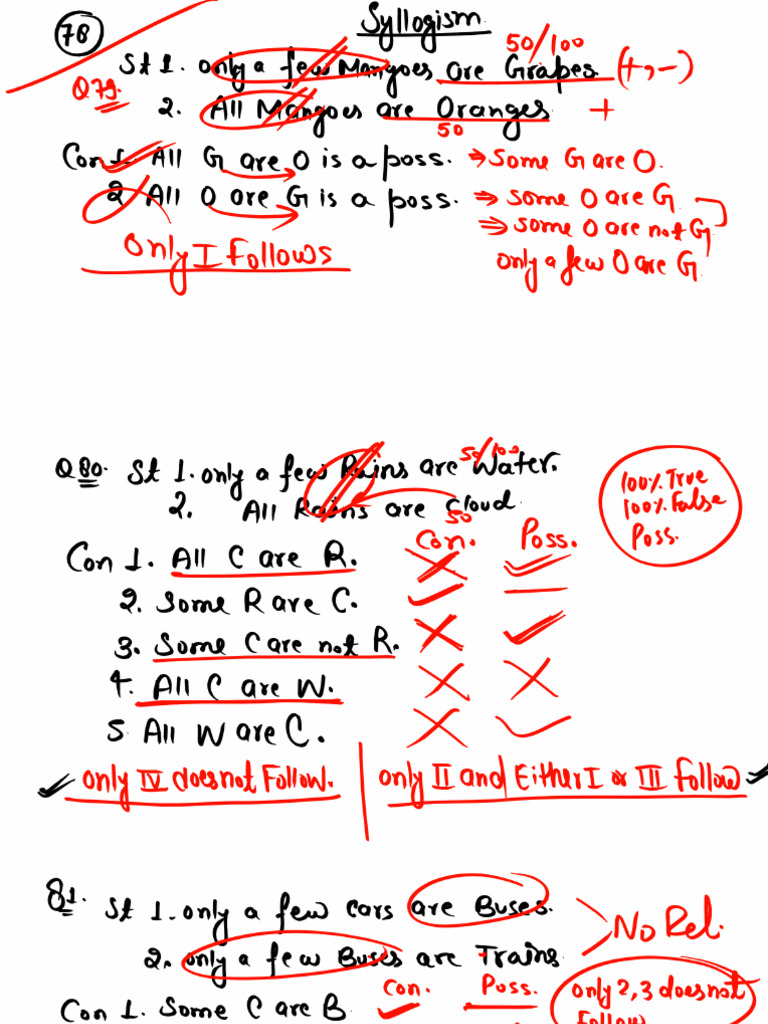 78
Syllogism
50/100
St 1. only a few Mangoes are Grapes (+,-)
Q79.
2. All Mangoes are Oranges +
50
Con 1. All G are O is a poss. → Some G are O.
2 All O are G is a poss. ⇒ some O are G
⇒ some O are not G
only a few O are G
Only I Follows
50/100
Q80. St 1. only a few Rains are Water.
2. All Rains are Cloud.
50
100% True
100% False
Poss.
Con. Poss.
Con 1. All C are R. ✗ ✓
2. Some R are C. ✓ —
3. Some C are not R. ✗ ✓
4. All C are W. ✗ ✗
5. All W are C. ✗ ✓
✓ only IV does not Follow. | only II and Either I or III Follow ✓
81. St 1. only a few Cars are Buses.
No Rel.
2. only a few Buses are Trains
Con. Poss.
Con 1. Some C are B ✓ —
only 2,3 does not
Follow